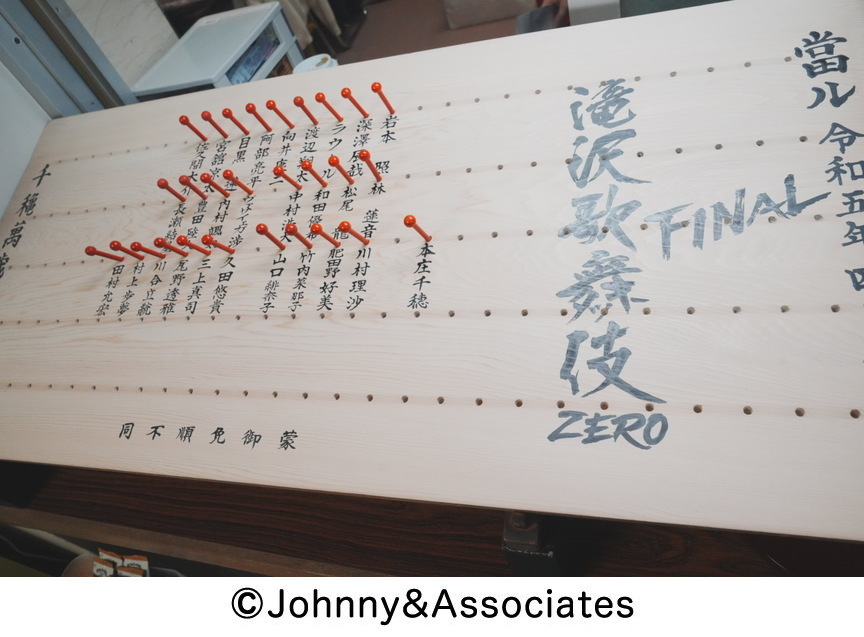 當ル
令和五年四
滝沢歌舞伎
ZERO
FINAL
岩本 照
深澤辰哉
ラウール
渡辺翔太
向井康二
阿部亮平
目黒 蓮
宮舘涼太
佐久間大介
林 蓮音
松尾 龍
和田優希
中村浩大
内村颯太
豊田陸人
長瀬結星
本庄千穂
川村理沙
肥田野好美
竹内菜那子
山口緋奈子
久田悠貴
三上真司
尾野透雅
川合立統
村上歩夢
田村允宏
千穐萬歳
蒙御免順不同
©Johnny&Associates